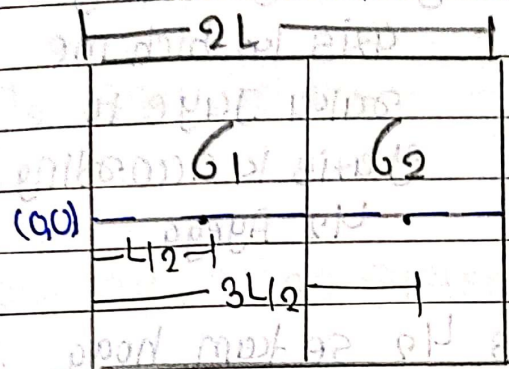 2L
σ1 σ2
(0,0)
L/2
3L/2